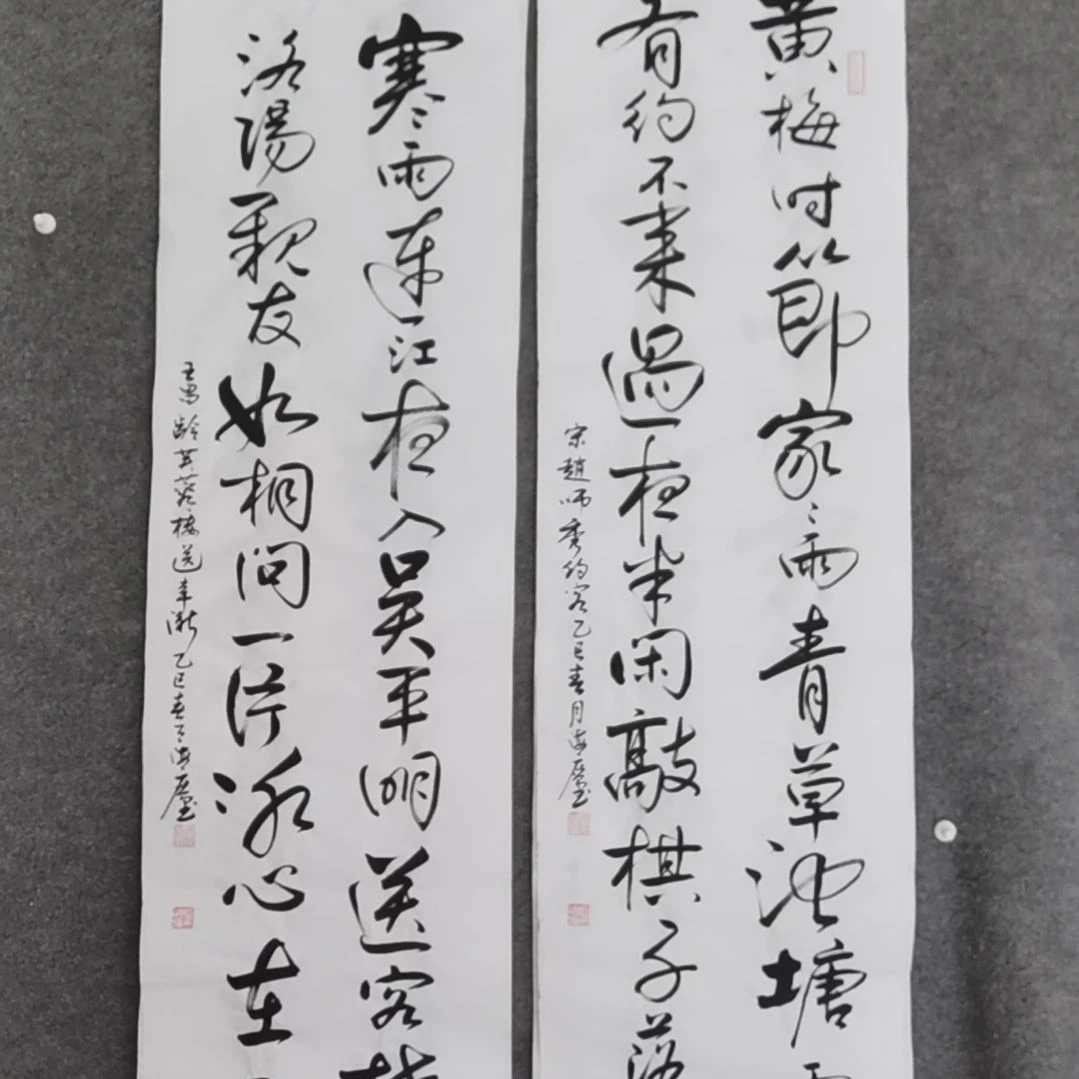 黄梅时節家〻雨青草池塘
有约不来過夜半闲敲棋子落
宋趙师秀约客乙巳春月海
寒雨連江夜入吴平明送客楚
洛陽親友如相问一片冰心在
王昌龄芙蓉楼送辛渐乙巳春